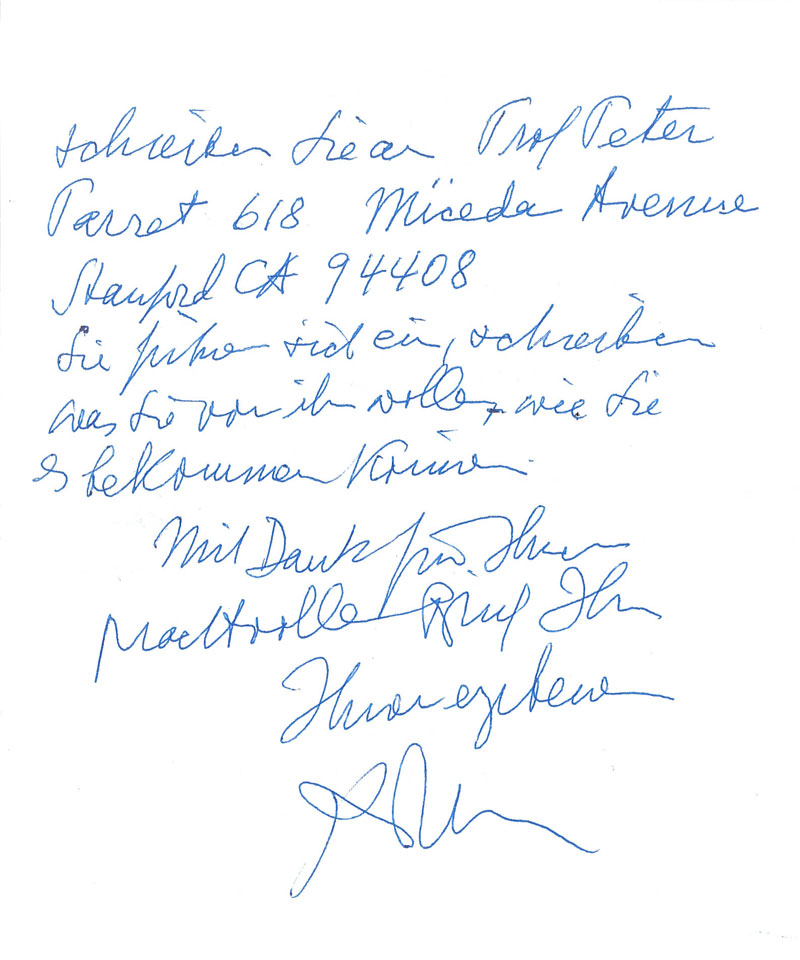 schreiben Sie an Prof Peter
Parret 618 Miceda Avenue
Stanford CA 94408
Sie führen sich ein, schreiben
was Sie von ihm wollen, wie Sie
es bekommen können.
Mit Dank für Ihren
Brief Ihr
Ihnen ergebener